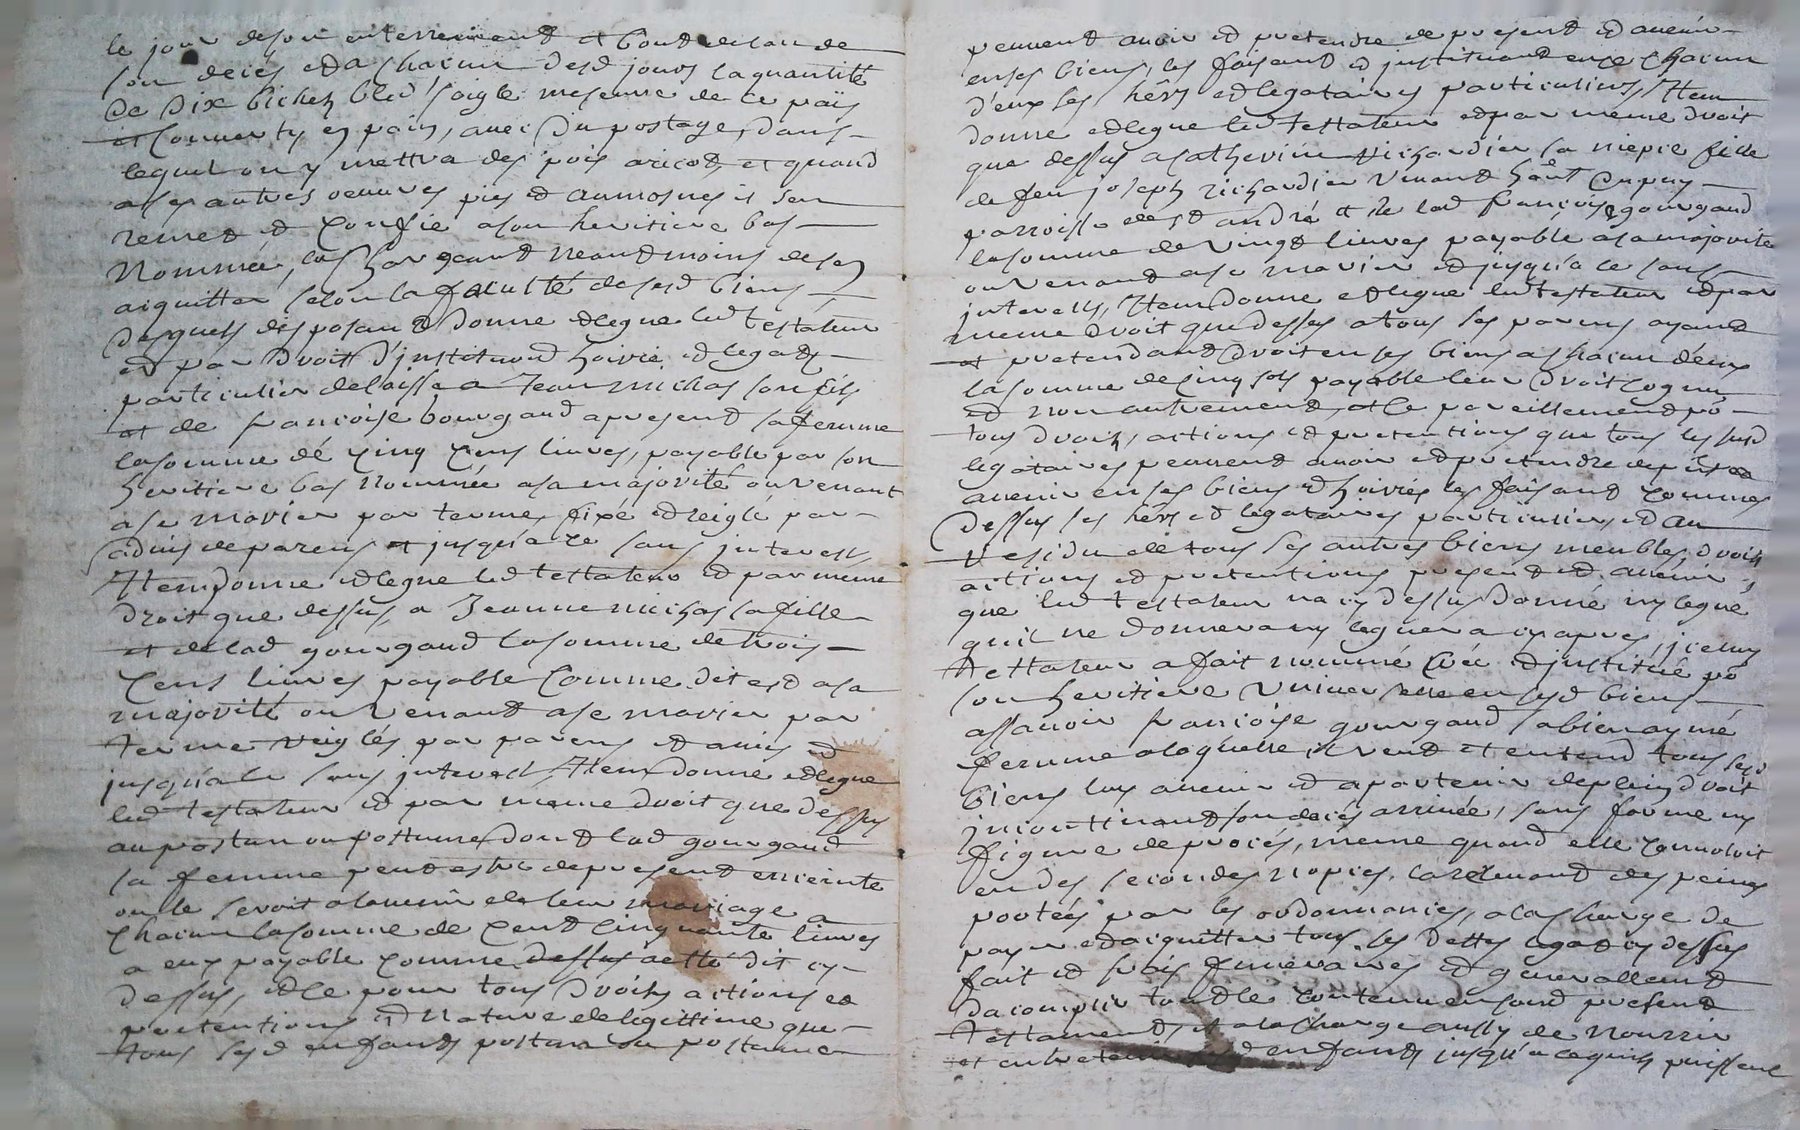 le jour de son enterrement et bout de lan de
son decés et a chacun desd jours la quantité
de dix bichets bled soigle meseure de ce païs
et convertis en pain, avec du potage, dans
lequel on y mettra des pois aricots et quand
a ses autres oeuvres pies et aumosnes il sen
remet et confie a son heritiere bas
nommée, las chargeant neantmoins de sen
aiquitter selon la faculté de sesd biens
desquels disposant donne et legue led testateur
et par droit d'institution hoirie et legat
particulier delaisse a Jean michas son fils
et de francoise gourgaud a present sa femme
la somme de cinq cens livres, payable par son
heritiere bas nommée a sa majorité ou venant
a se marier par termes fixé et reiglé par
advis de parens et jusqu'a ce sans interests,
Item donne et legue led testateur et par meme
droit que dessus, a Jeanne michas sa fille
et de lad gourgaud la somme de trois
cens livres payable comme dit est a sa
majorité ou venant a se marier par
terme reiglés par parens et amis et
jusqu'a ce sans interest, Item donne et legue
led testateur et par meme droit que dessus
au postum ou postume dont lad gourgaud
sa femme peut estre de present enceinte
ou le seroit a lavenir de leur mariage a
chacun la somme de cent cinquante livres
a eux payable comme dessus a etté dit cy
dessus, et le pour tous droits actions et
pretentions et nature de legittime que
tous sesd enfants postum ou postume
peuvent avoir et pretendre de present et avenir
en ses biens, les faisant et instituant en ce chacun
d'eux ses hers et legataires particuliers, Item
donne et legue led testateur et par meme droit
que dessus a catherine richardier sa niepce fille
de feu joseph richardier vivant hôte du puy
parroisse de st andré et de lad francoise gourgaud
la somme de vingt livres payable a sa majorité
ou venant a se marier et jusqu'a ce sans
interests, Item donne et legue led testateur et par
meme droit que dessus a tous ses parens ayant
et pretendant droit en ses biens a chacun d'eux
la somme de cinq sols payable leur droit cognu
et non autrement, et ce pareillement po
tous droits, actions et pretentions que tous les susd
legataires peuvent avoir et pretendre de pnt et
avenir en ses biens et hoiries les faisant comme
dessus ses hers et legataires particuliers et au
residu de tous ses autres biens meubles, droits
actions et pretentions present et avenir
que led testateur na cy dessus donné ny legué
qu'il ne donnera ny leguera cy apres, iceluy
testateur a fait nommé créé et institué po
son heritiere universelle en sesd biens
assavoir francoise gourgaud sa bien aymé
femme a laquelle il veut et entend tous sesd
biens luy avenir et apartenir de plein droit
incontinant son decés arrivé, sans forme ny
figure de procés, meme quand elle convoloit
en des secondes nopces, la relevant des peines
portées par les ordonnances, a la charge de
payer et aiquitter tous ses dettes legats cy dessus
fait et frais funeraires et generallement
d'acomplir tout le contenu en sond present
testament, et a la charge aussy de nourrir
et entretenir sesd enfants jusqu'a ce quils puissent